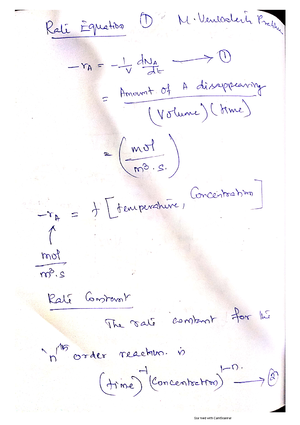 Rate Equation ① M. Venkatesh
-rA = -1/V dNA/dt → ①
= Amount of A disappearing / (Volume) (time)
= (mol / m³. s.)
-rA = f [temperature, Concentration]
↑
mol / m³. s
Rate Constant
The rate constant for the
'n'th order reaction is
(time)⁻¹ (Concentration)¹⁻ⁿ. → ②
Scanned with CamScanner